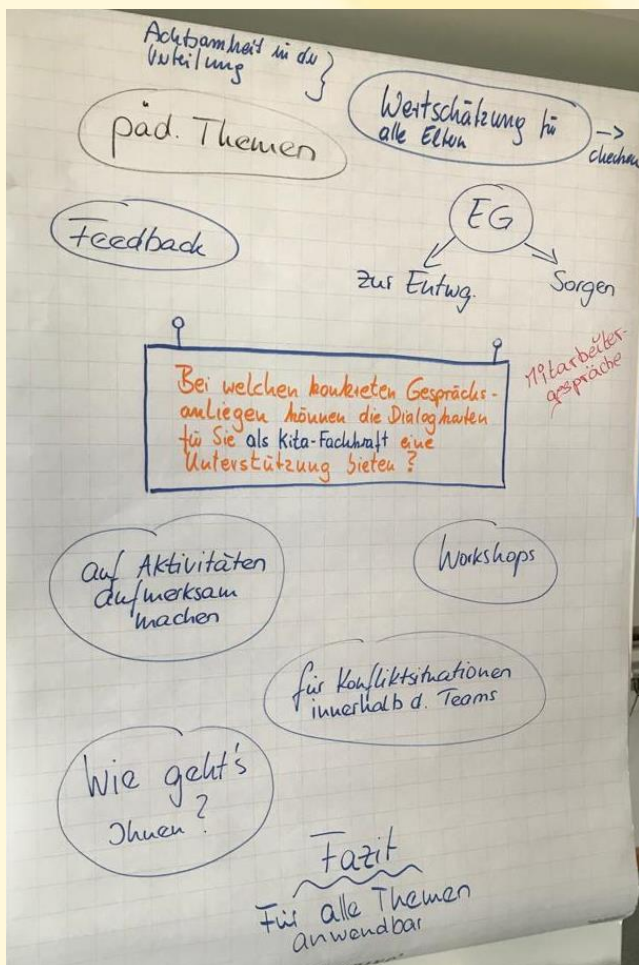 Achtsamheit in der
Verteilung
Wertschätzung für
alle Eltern
-> checken
päd. Themen
Feedback
EG
zur Entwg.
Sorgen
Mitarbeiter-
gespräche
Bei welchen konkreten Gesprächs-
anliegen können die Dialogkarten
für Sie als Kita-Fachkraft eine
Unterstützung bieten?
auf Aktivitäten
aufmerksam
machen
Workshops
für Konfliktsituationen
innerhalb d. Teams
Wie geht's
Ihnen?
Fazit
Für alle Themen
anwendbar